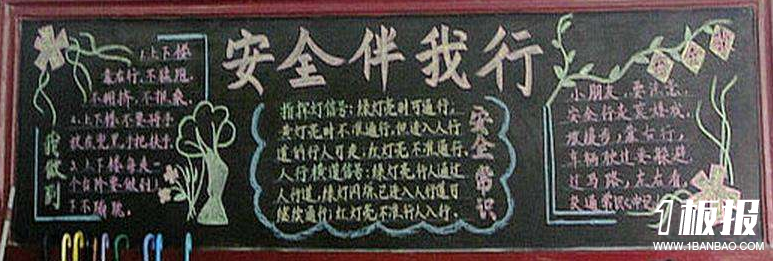 安全伴我行
我做到
1.上下楼
靠右行,不猛跑
不拥挤,不推桑。
2.上下楼不要将手
放在兜里,手把扶手
3.上下楼每走一
个台阶要做到:
下不猛跳。
指挥灯信号:绿灯亮时可通行,
黄灯亮时不准通行,但进入人行
道的行人可走;红灯亮不准通行。
人行横道信号:绿灯亮,行人通过
人行道,绿灯闪烁,已进入人行道可
继续通行;红灯亮不准行人入行。
安全常识
小朋友,要注意,
安全行走莫嬉戏。
坡慢步,靠右行,
车辆驶过要躲避
过马路,左右看,
交通常识心中记。
1板报
WWW.1BANBAO.COM